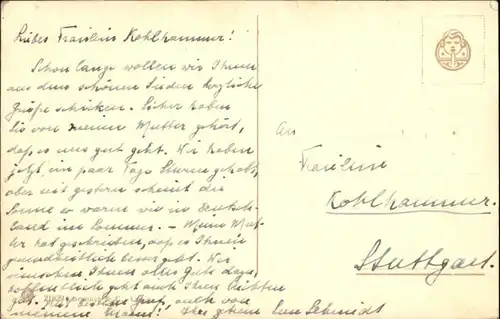 Liebes Fräulein Kohlhammer!
Schon lange wollen wir Ihnen
aus dem schönen Süden herzliche
Grüße schicken. Sicher haben
Sie von meiner Mutter gehört,
daß es uns gut geht. Wir haben
jetzt ein paar Tage Sturm gehabt,
aber seit gestern scheint die
Sonne so warm wie in Deutsch-
land im Sommer. – Meine Mut-
ter hat geschrieben, daß es Ihnen
gesundheitlich besser geht. Wir
wünschen Ihnen alles Gute dazu,
hoffentlich geht auch Ihnen
gut. Mit besten Gruß, auch von
meinem Mann! Ihre Schmidt
An
Fräulein
Kohlhammer.
Stuttgart.